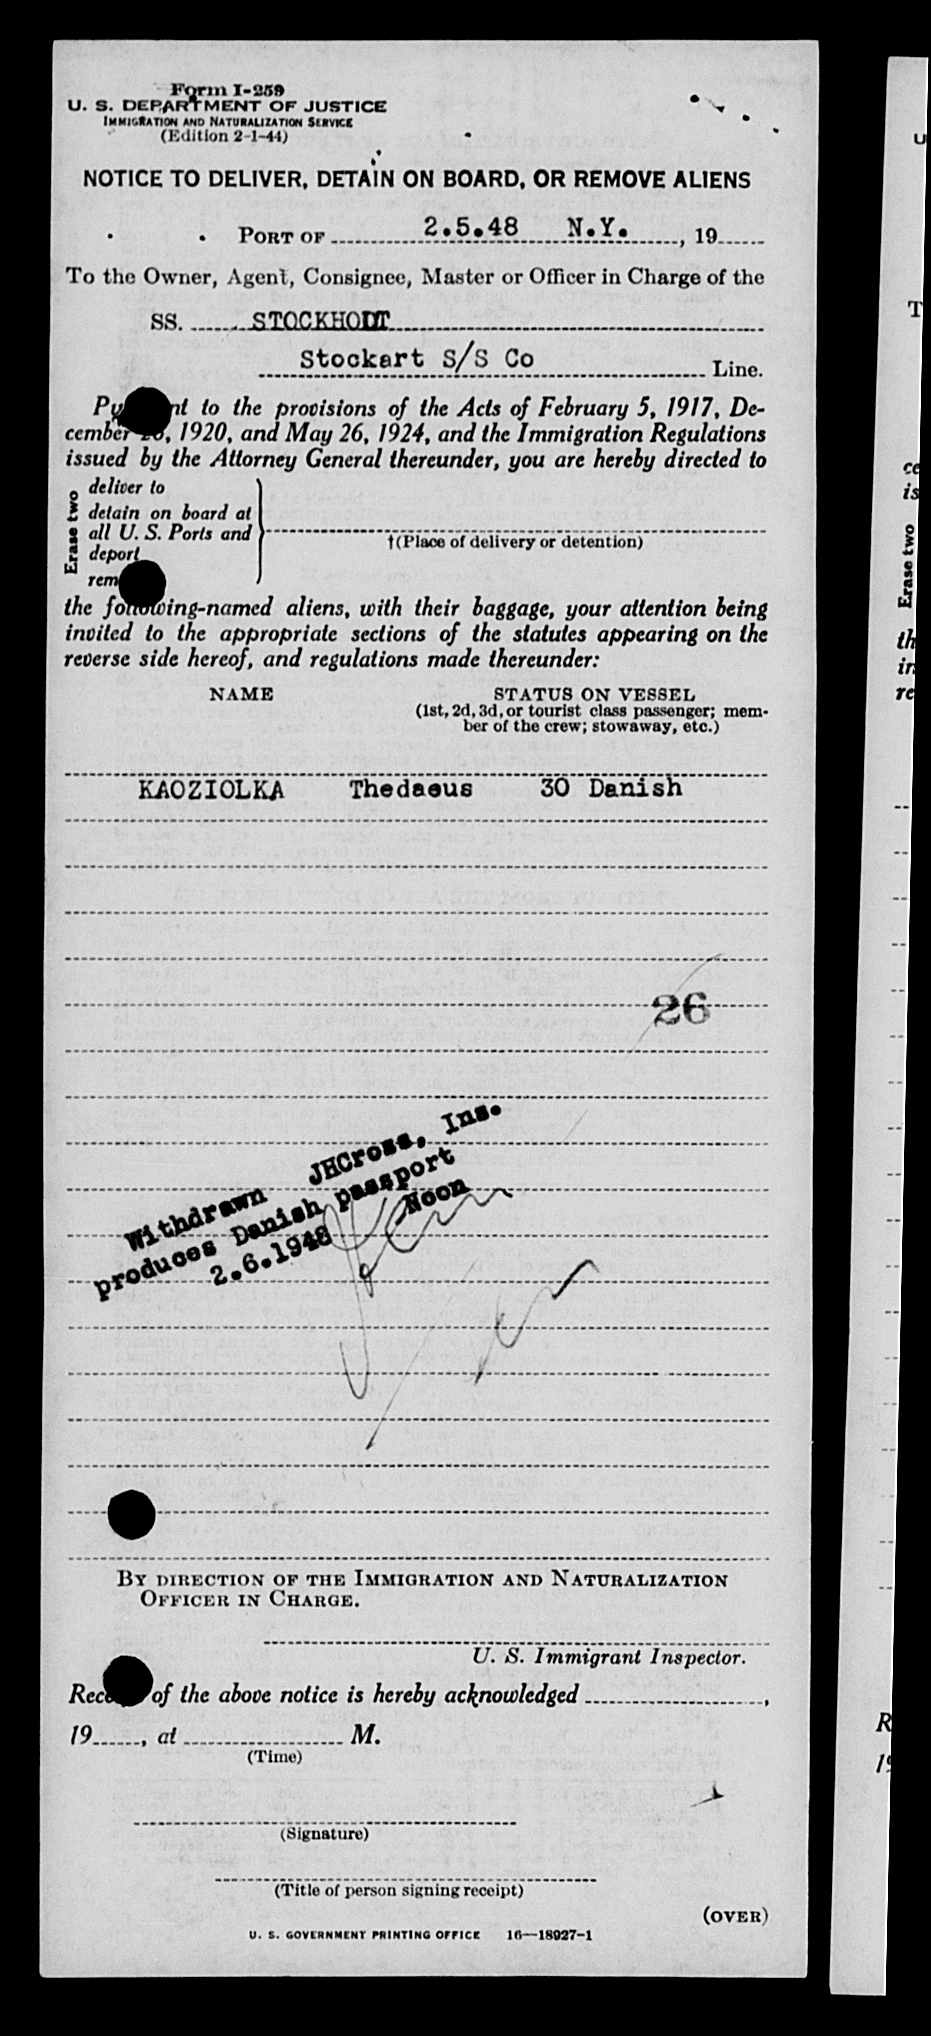 Form I-259
U. S. DEPARTMENT OF JUSTICE
IMMIGRATION AND NATURALIZATION SERVICE
(Edition 2-1-44)
NOTICE TO DELIVER, DETAIN ON BOARD, OR REMOVE ALIENS
PORT OF 2.5.48 N.Y. , 19
To the Owner, Agent, Consignee, Master or Officer in Charge of the
SS.
Stockart S/S Co Line.
to the provisions of the Acts of February 5, 1917, De-
cember , 1920, and May 26, 1924, and the Immigration Regulations
issued by the Attorney General thereunder, you are hereby directed to
Erase two
deliver to
detain on board at
all U. S. Ports and
deport
†(Place of delivery or detention)
the following-named aliens, with their baggage, your attention being
invited to the appropriate sections of the statutes appearing on the
reverse side hereof, and regulations made thereunder:
NAME STATUS ON VESSEL
(1st, 2d, 3d, or tourist class passenger; mem-
ber of the crew; stowaway, etc.)
KAOZIOLKA Thedaeus 30 Danish
26
Withdrawn JHCross, Ins.
produces Danish passport
2.6.1948 Noon
BY DIRECTION OF THE IMMIGRATION AND NATURALIZATION
OFFICER IN CHARGE.
U. S. Immigrant Inspector.
of the above notice is hereby acknowledged ,
19 , at M.
(Time)
(Signature)
(Title of person signing receipt)
(OVER)
U. S. GOVERNMENT PRINTING OFFICE 16—18927-1